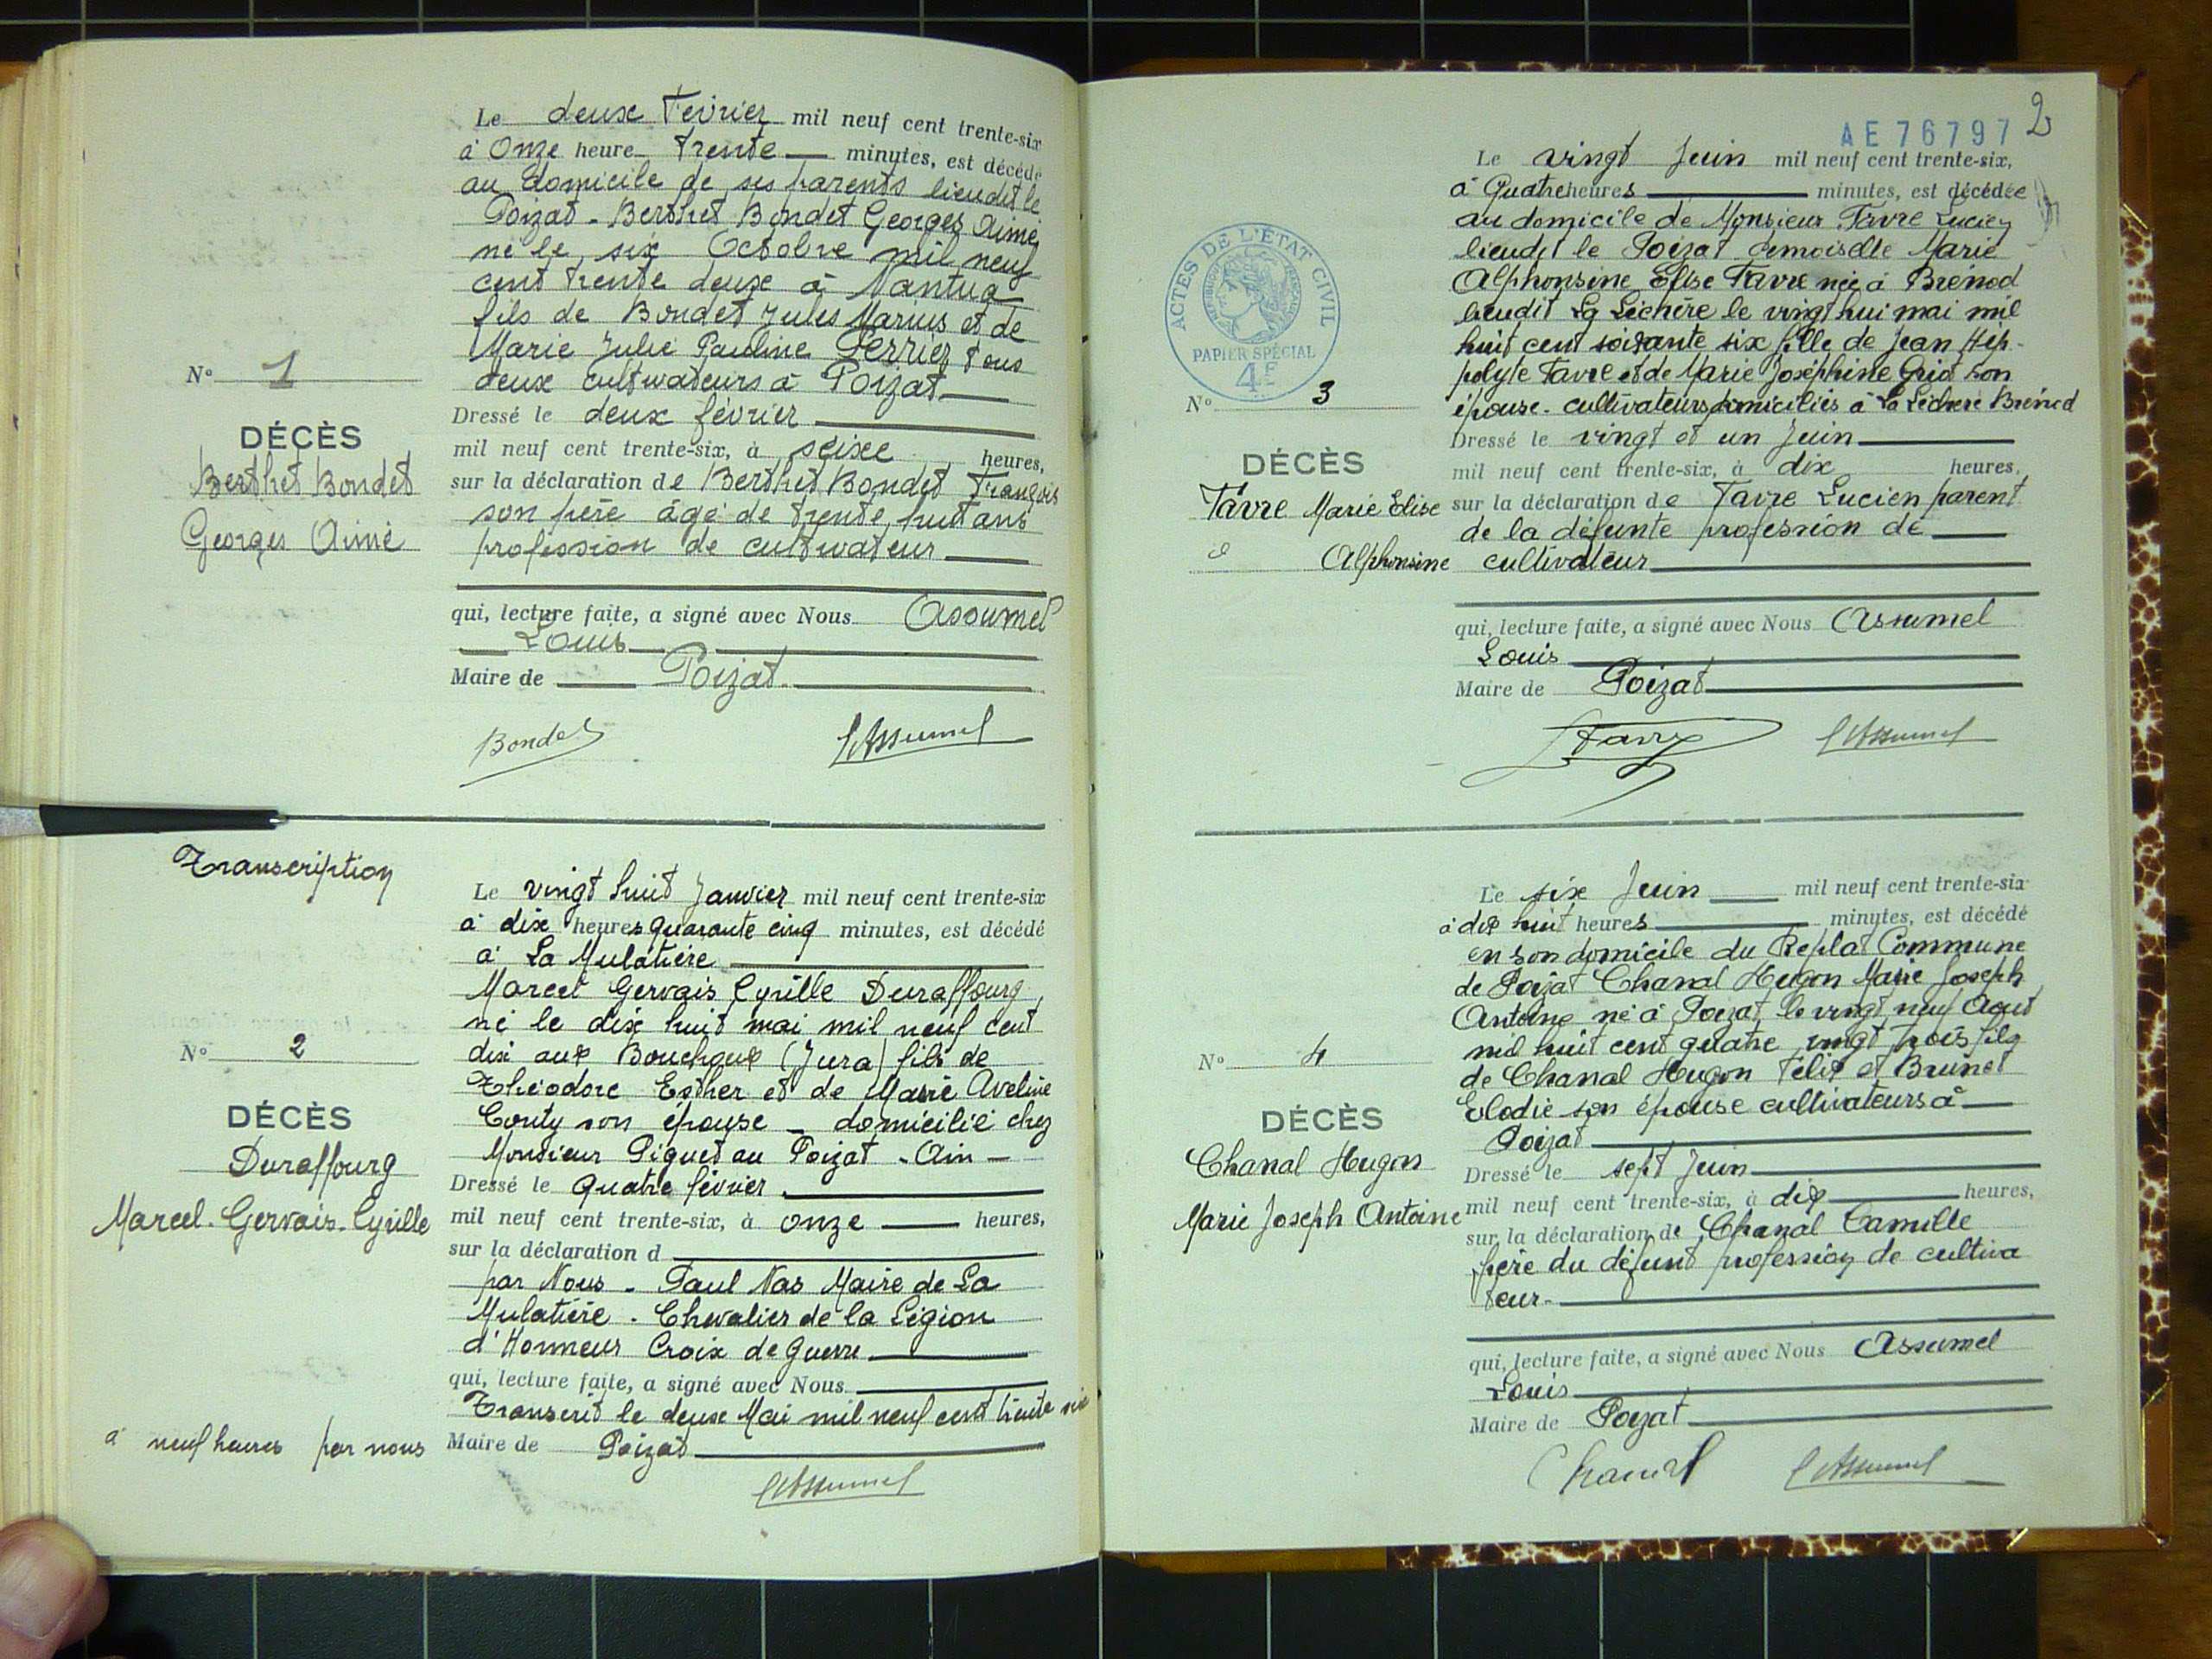 Le deux Février mil neuf cent trente-six
à Onze heure trente minutes, est décédé
au domicile de ses parents lieudit le
Poizat - Berthet Bondet Georges Aimé
né le six Octobre mil neuf
cent trente deux à Nantua
fils de Bondet Jules Marius et de
Marie Julie Pauline Perrier tous
deux cultivateurs à Poizat
N° 1
DÉCÈS
Berthet Bondet
Georges Aimé
Dressé le deux février
mil neuf cent trente-six, à seixe heures,
sur la déclaration de Berthet Bondet François
son père âgé de trente huit ans
profession de cultivateur
qui, lecture faite, a signé avec Nous Assumel
Louis
Maire de Poizat
Bondet LAssumel
Transcription
Le vingt huit Janvier mil neuf cent trente-six
à dix heures quarante cinq minutes, est décédé
à La Mulatière
Marcel Gervais Cyrille Duraffourg
né le dix huit mai mil neuf cent
dix aux Bouchoux (Jura) fils de
Théodore Esther et de Marie Aveline
Couty son épouse - domicilié chez
Monsieur Piguet au Poizat - Ain -
N° 2
DÉCÈS
Duraffourg
Marcel - Gervais - Cyrille
Dressé le quatre février
mil neuf cent trente-six, à onze heures,
sur la déclaration d
par Nous - Paul Nas Maire de La
Mulatière - Chevalier de la Légion
d'Honneur Croix de Guerre
qui, lecture faite, a signé avec Nous
Transcrit le deux Mai mil neuf cent trente six
à neuf heures par nous Maire de Poizat
LAssumel
2
AE 76797
Le vingt Juin mil neuf cent trente-six,
à Quatre heures minutes, est décédée
au domicile de Monsieur Favre Lucien
lieudit le Poizat demoiselle Marie
Alphonsine Elise Favre née à Brénod
lieudit La Léchère le vingt hui mai mil
huit cent soixante six fille de Jean Hip-
polyte Favre et de Marie Joséphine Griot son
épouse - cultivateurs domiciliés à La Léchère Brénod
ACTES DE L'ÉTAT CIVIL
RÉPUBLIQUE FRANÇAISE
PAPIER SPÉCIAL
4F
N° 3
DÉCÈS
Favre Marie Elise
Alphonsine
Dressé le vingt et un Juin
mil neuf cent trente-six, à dix heures,
sur la déclaration de Favre Lucien parent
de la défunte profession de
cultivateur
qui, lecture faite, a signé avec Nous Assumel
Louis
Maire de Poizat
LFavre LAssumel
Le six Juin mil neuf cent trente-six
à dix huit heures minutes, est décédé
en son domicile du Replat Commune
de Poizat Chanal Hugon Marie Joseph
Antoine né à Poizat le vingt neuf Août
mil huit cent quatre vingt trois fils
de Chanal Hugon Félix et Brunet
Elodie son épouse cultivateurs à
Poizat
N° 4
DÉCÈS
Chanal Hugon
Marie Joseph Antoine
Dressé le sept Juin
mil neuf cent trente-six, à dix heures,
sur la déclaration de Chanal Camille
frère du défunt profession de cultiva
teur-
qui, lecture faite, a signé avec Nous Assumel
Louis
Maire de Poizat
Chanal LAssumel